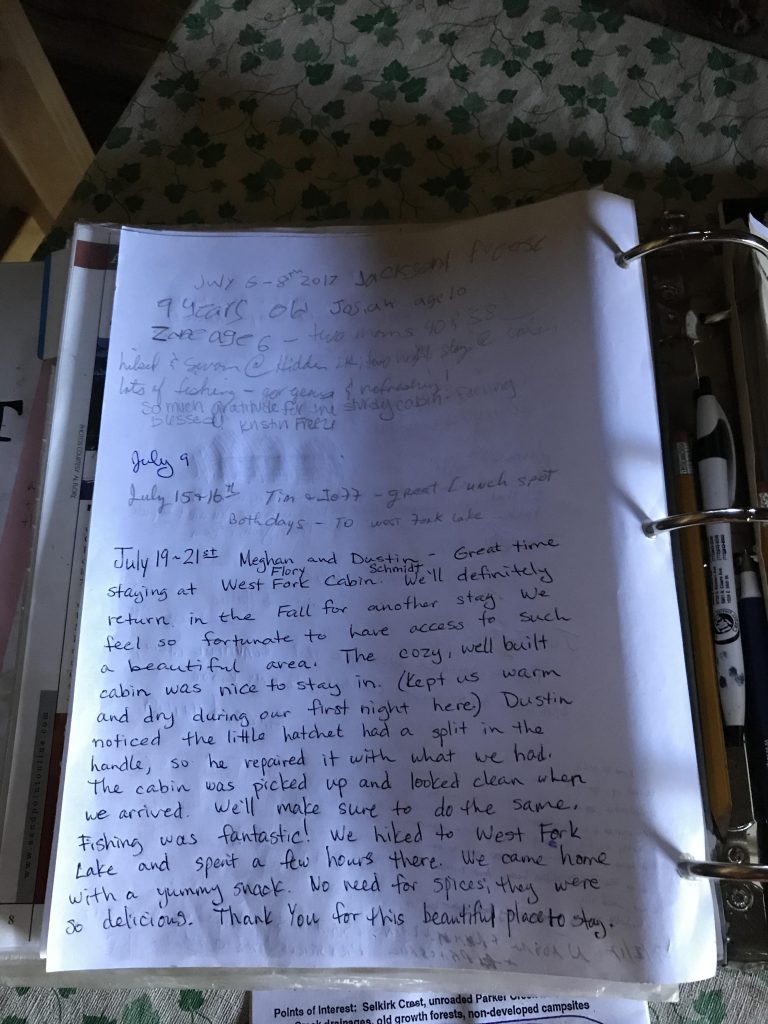 July 6-8th 2017 Jackson Freese
9 Years old Josiah age 10
Zane age 6 - two moms 40 & 38
hiked & Swam @ Hidden Lk, two night stay @ cabin
lots of fishing - gorgeous & refreshing!
So much gratitude for the sturdy cabin. Feeling
Blessed! Kristin Freese
July 9
July 15+16th Tim & Jeff - great Lunch spot
Both days - To west Fork Lake
July 19-21st Meghan and Dustin - Great time
Flory Schmidt
staying at West Fork Cabin. We'll definitely
return in the Fall for another stay. We
feel so fortunate to have access to such
a beautiful area. The cozy, well built
cabin was nice to stay in. (Kept us warm
and dry during our first night here) Dustin
noticed the little hatchet had a split in the
handle, so he repaired it with what we had.
The cabin was picked up and looked clean when
we arrived. We'll make sure to do the same.
Fishing was fantastic! We hiked to West Fork
Lake and spent a few hours there. We came home
with a yummy snack. No need for spices; they were
so delicious. Thank You for this beautiful place to stay.
www.sandpointonline.com
8
Points of Interest: Selkirk Crest, unroaded Parker Creek
Creek drainages, old growth forests, non-developed campsites